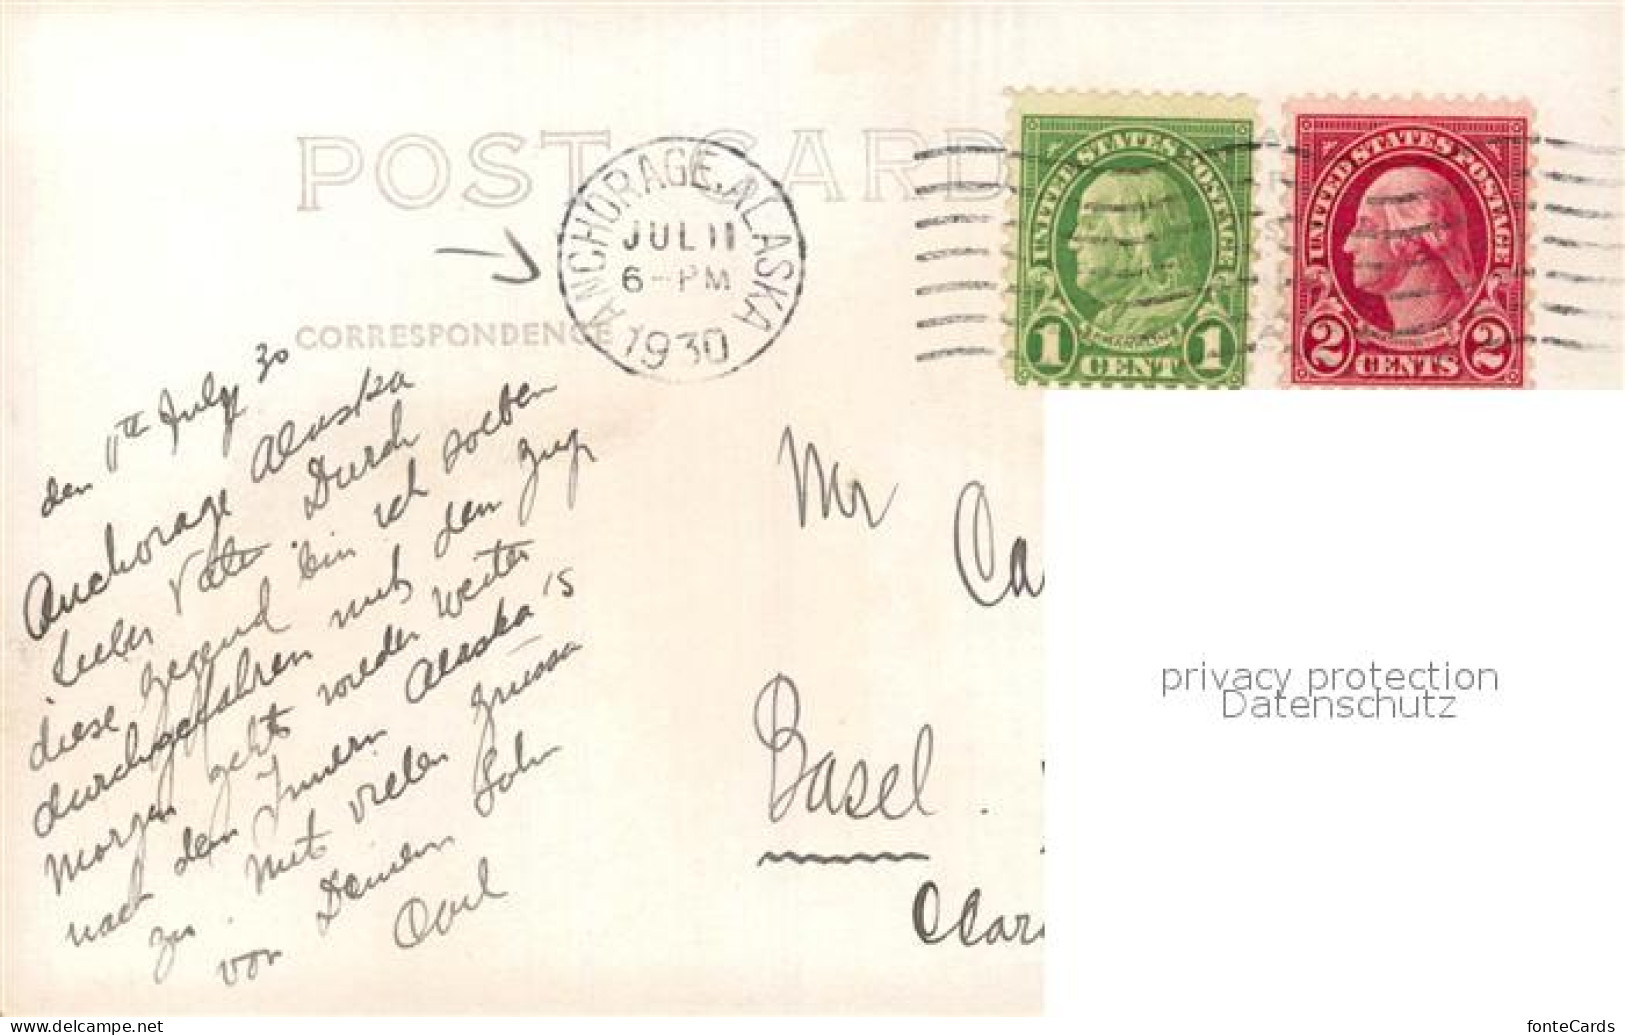 POST CARD
CORRESPONDENCE
ANCHORAGE, ALASKA
JUL 11
6-PM
1930
UNITED STATES POSTAGE
FRANKLIN
1 CENT 1
UNITED STATES POSTAGE
2 CENTS 2
den 11th July 30
Anchorage Alaska
Lieber Vater Durch
diese gegend bin ich soeben
durchgefahren mit dem Zug
Morgen gehts wieder weiter
nach dem Innern Alaska's
zu. Mit vielen grüssen
von Deinem Sohn
Carl
Mr Ca
Basel.
Clar
privacy protection
Datenschutz
www.delcampe.net
fonteCards